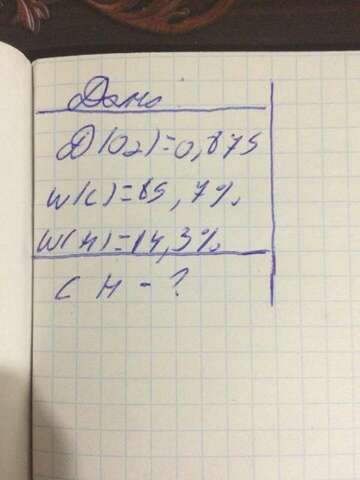 Дано
D(O2)=0,875
w(C)=85,7%
w(H)=14,3%
C H - ?